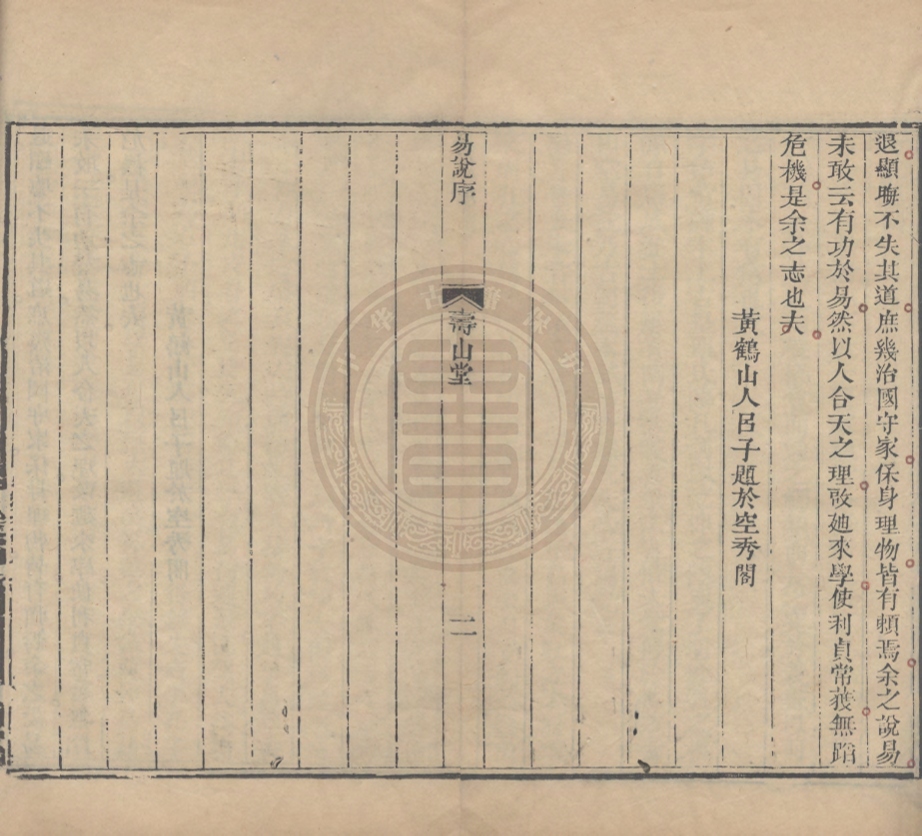 退顯晦不失其道庶幾治國守家保身理物皆有賴焉余之說易
未敢云有功於易然以人合天之理啟迪來學使利貞常獲無蹈
危機是余之志也夫
黃鶴山人呂子題於空秀閣
易說序
壽山堂
二